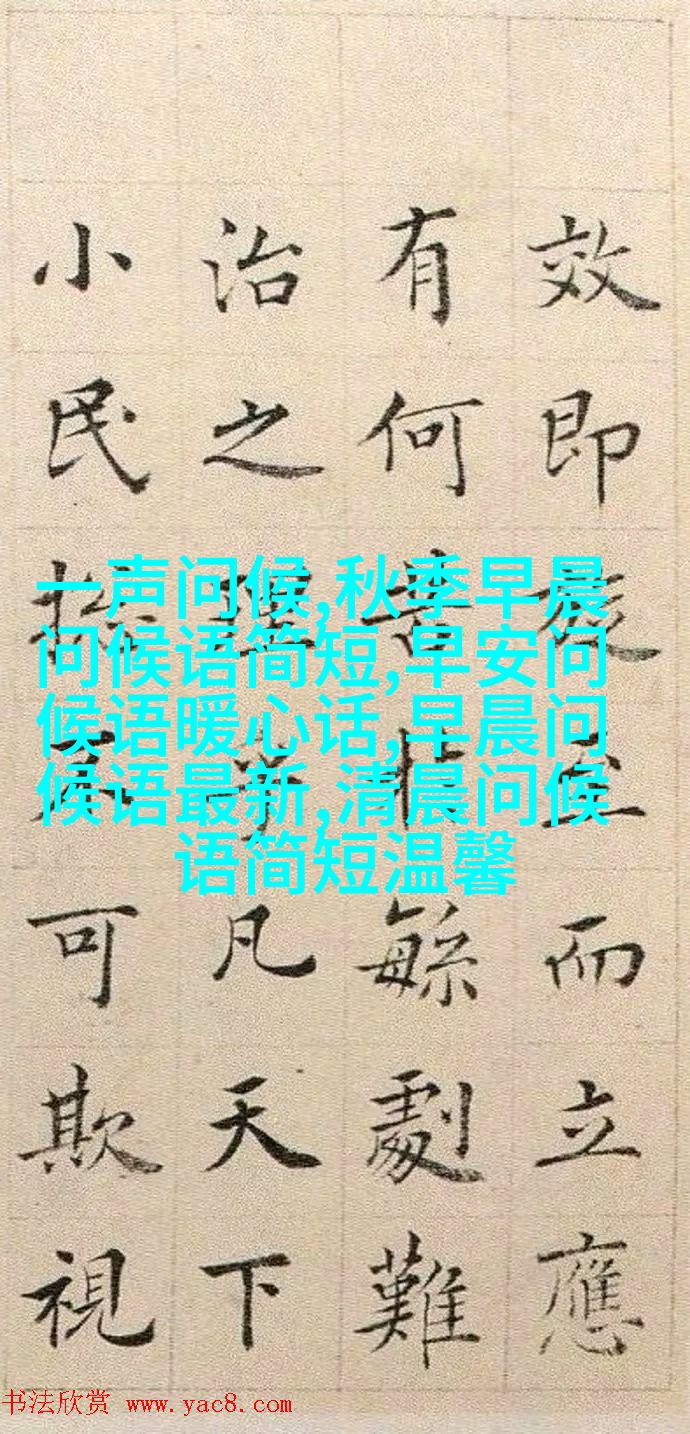 效即而立應
有何繁劇難
治之理凡天下
小民可欺視
一声问候,秋季早晨
问候语简短,早安问
候语暖心话,早晨问
候语最新,清晨问候
语简短温馨
书法欣赏 www.yac8.com